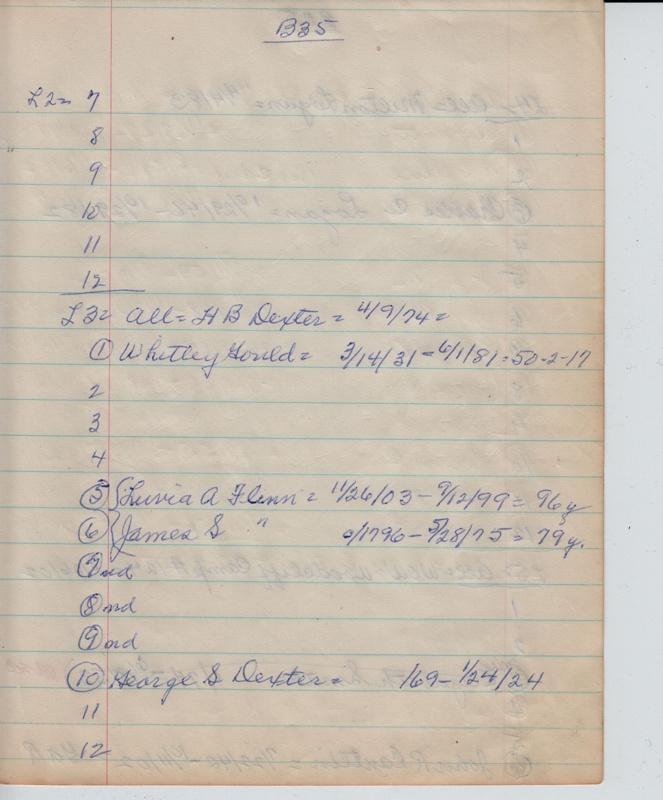 B35
L2= 7
8
9
10
11
12
L3= All= H B Dexter = 4/9/74 =
① Whitley Gould = 3/14/31 - 6/1/81 = 50-2-17
2
3
4
⑤ { Luvia A Flinn = 11/26/03 - 9/12/99 = 96y
⑥ { James S " /1796 - 5/28/75 = 79y.
⑦ nd
⑧ nd
⑨ nd
⑩ George S Dexter = /69 - 1/24/24
11
12